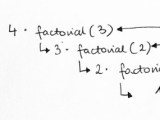 4 · factorial (3)
3 · factorial (2)
2 · factorial